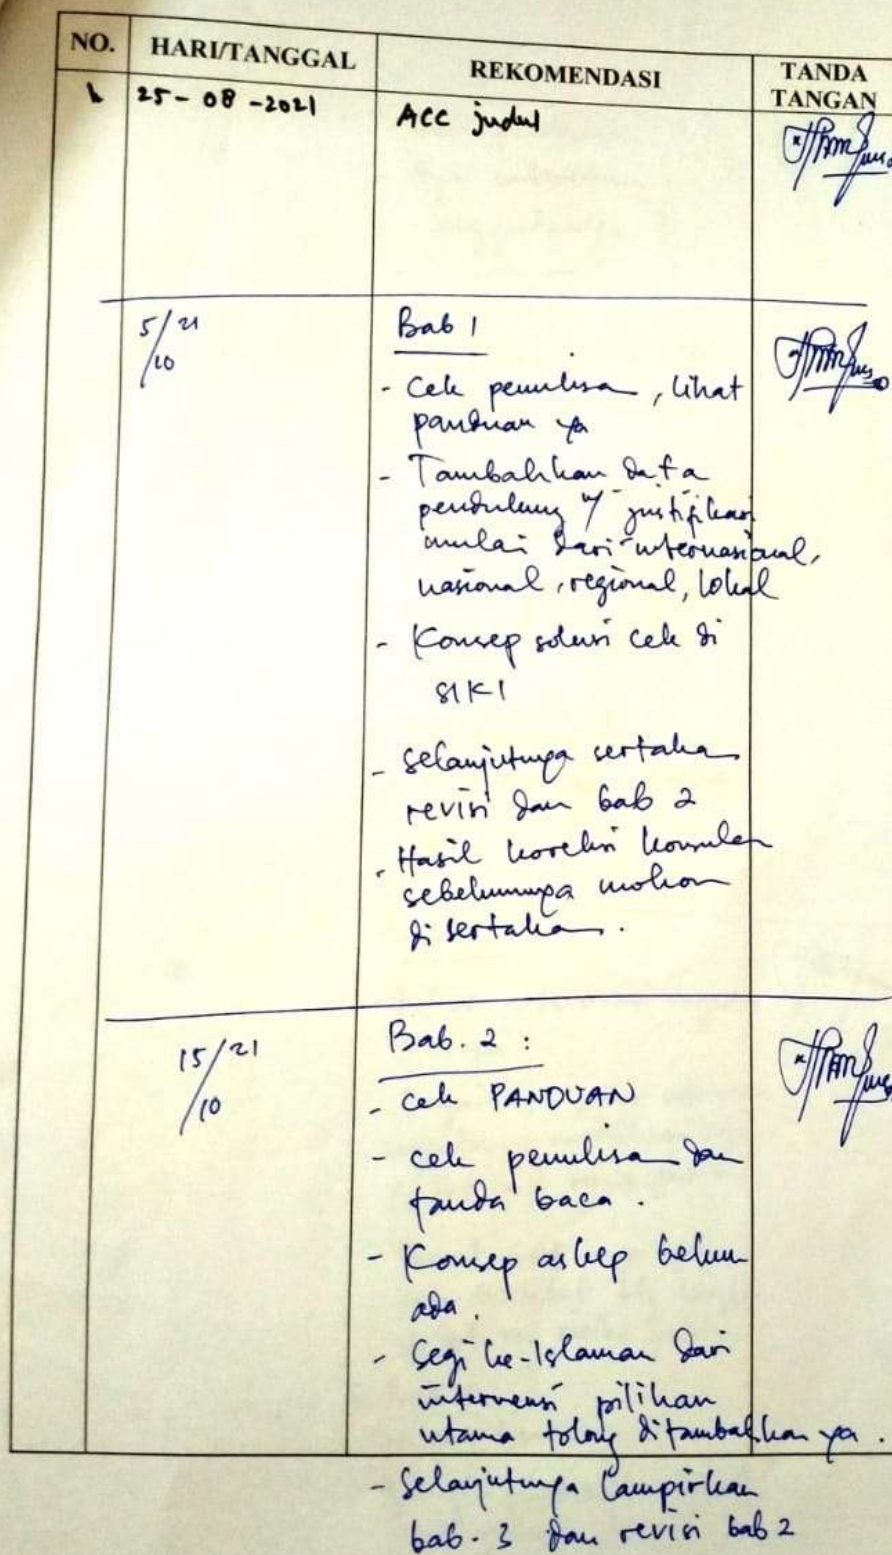 NO. HARI/TANGGAL REKOMENDASI TANDA TANGAN
1 25-08-2021 ACC judul
5/21/10 Bab 1
- Cek penulisa, lihat
panduan ya
- Tambahkan data
pendukung u/ justifikasi
mulai dari internasional,
nasional, regional, lokal
- Konsep solusi cek di
SIKI
- selanjutnya sertaka
revisi dan bab 2
- Hasil koreksi konsulan
sebelumnya mohon
di sertakan.
15/21/10 Bab. 2 :
- cek PANDUAN
- cek penulisan dan
tanda baca.
- Konsep askep belum
ada.
- Segi ke-Islaman dari
intervensi pilihan
utama tolong ditambahkan ya.
- Selanjutnya lampirkan
bab. 3 dan revisi bab 2